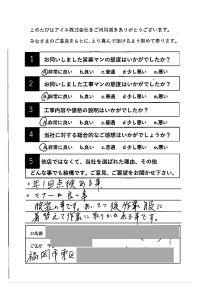 このたびはアイエ株式会社をご利用頂きありがとうございます。
みなさまのご意見をもとに、より喜んで頂けるよう努めて参ります。
1 お伺いしました営業マンの態度はいかがでしたか?
a.非常に良い b.良い c.普通 d.少し悪い e.悪い
2 お伺いしました工事マンの態度はいかがでしたか?
a.非常に良い b.良い c.普通 d.少し悪い e.悪い
3 工事内容や価格の説明はいかがでしたか?
a.非常に良い b.良い c.普通 d.少し悪い e.悪い
4 当社に対する総合的なご感想はいかがでしょうか?
a.非常に良い b.良い c.普通 d.少し悪い e.悪い
5 他店ではなくて、当社を選ばれた理由、その他
どんな事でも結構です。ご意見、ご要望をお聞かせ下さい。
・年1回点検ある事
・マナーが良い事
服装の事です。あいさつ後作業服に
着替えて作業に取りかかれる事です。
お名前
ご住所
福岡市東区